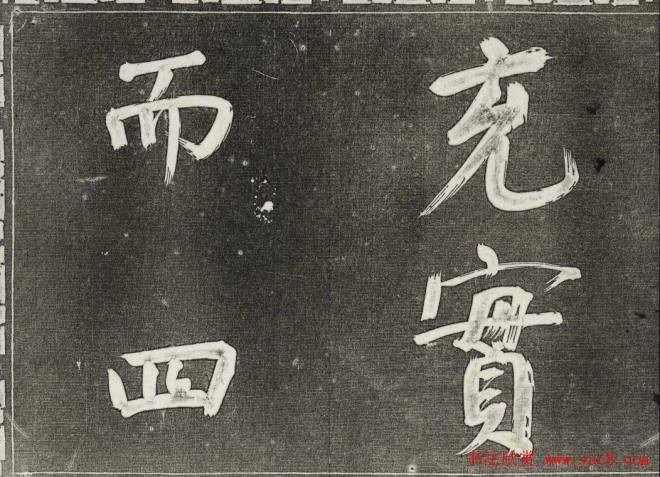 充實
而四
书法欣赏 www.yac8.com